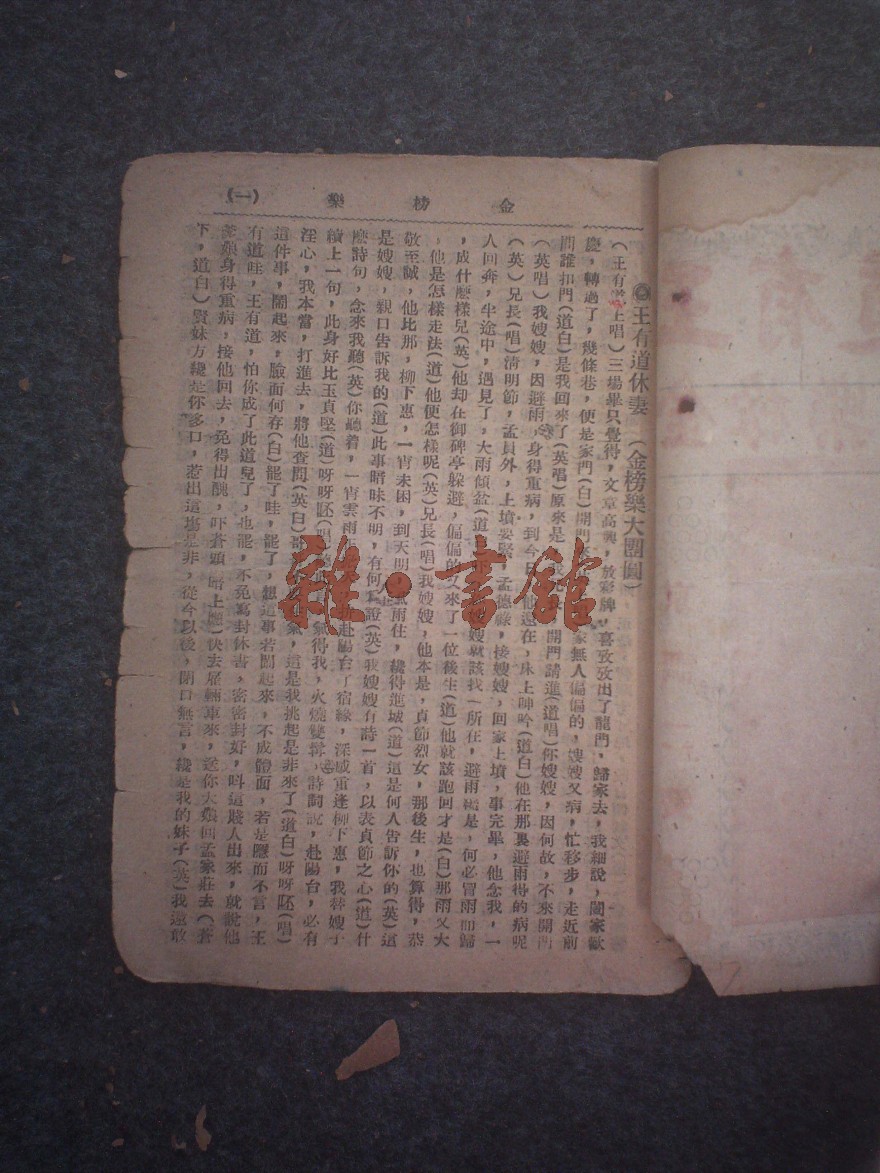 金榜樂 (一)
◎王有道休妻 (金榜樂大團圓)
(王有道上唱)三場畢只覺得,文章高興,放彩牌,喜孜孜出了龍門,歸家去,我細說,闔家歡
慶,轉過了,幾條巷,便是家門(白)開門來 家無人偏偏的,嫂嫂又病,忙移步,走近前
問誰扣門(道白)是我回來了(英唱)原來是 開門請進(道唱)你嫂嫂,因何故,不來開門
(英唱)我嫂嫂,因避雨,身得重病,到今日 還在,床上呻吟(道白)他在那裏避雨得的病呢
(英)兄長(唱)清明節,孟員外,上墳要緊,孟德祿,接嫂嫂,回家上墳,事完畢,他念我,一
人回奔,半途中,遇見了,大雨傾盆(道 嫂就該找一所在,避雨纔是,何必冒雨而歸
,成什麼樣兒(英)他却在御碑亭躲避,偏偏的又來了一位後生(道)他就該跑回才是(白)那雨又大
,他是怎樣走法(道)他便怎樣呢(英)兄長(唱)我嫂嫂,他本是,貞節烈女,那後生,也算得,恭
敬至誠,他比那,柳下惠,一宵未困,到天明, 雨住,纔得進城(道)這是何人告訴你的(英)這
是嫂嫂,親口告訴我的(道)此事暗昧不明,有何 為證(英)我嫂嫂有詩一首,以表貞節之心(道)什
麼詩句,念來我聽(英)你聽着,一宵雲雨 赴陽台了宿緣,深感重逢柳下惠,我替嫂子
續上一句,此身好比玉貞堅(道)呀呀呸(唱 氣得我,火燒雙 詩詞說,赴陽台,必有
淫心,我本當,打進去,將他查問(英白)哥 氣,這是我挑起是非來了(道白)呀呀呸(唱)
這件事,鬧起來,臉面何存(白)罷了哇,罷了,想這事若鬧起來,不成體面,若是隱而不言,王
有道哇,王有道,怕你成了此道兒了,也罷,不免寫封休書,密密封好,叫這賤人出來,就說他
爹娘身得重病,接他回去,免得出醜,吓蒼頭(暗上應)快去雇輛車來,送你大娘回孟家莊去(蒼
下,道白)賢妹方纔是你多口,惹出這塲是非,從今以後,閉口無言,纔是我的妹子(英)我還敢
雜·書館